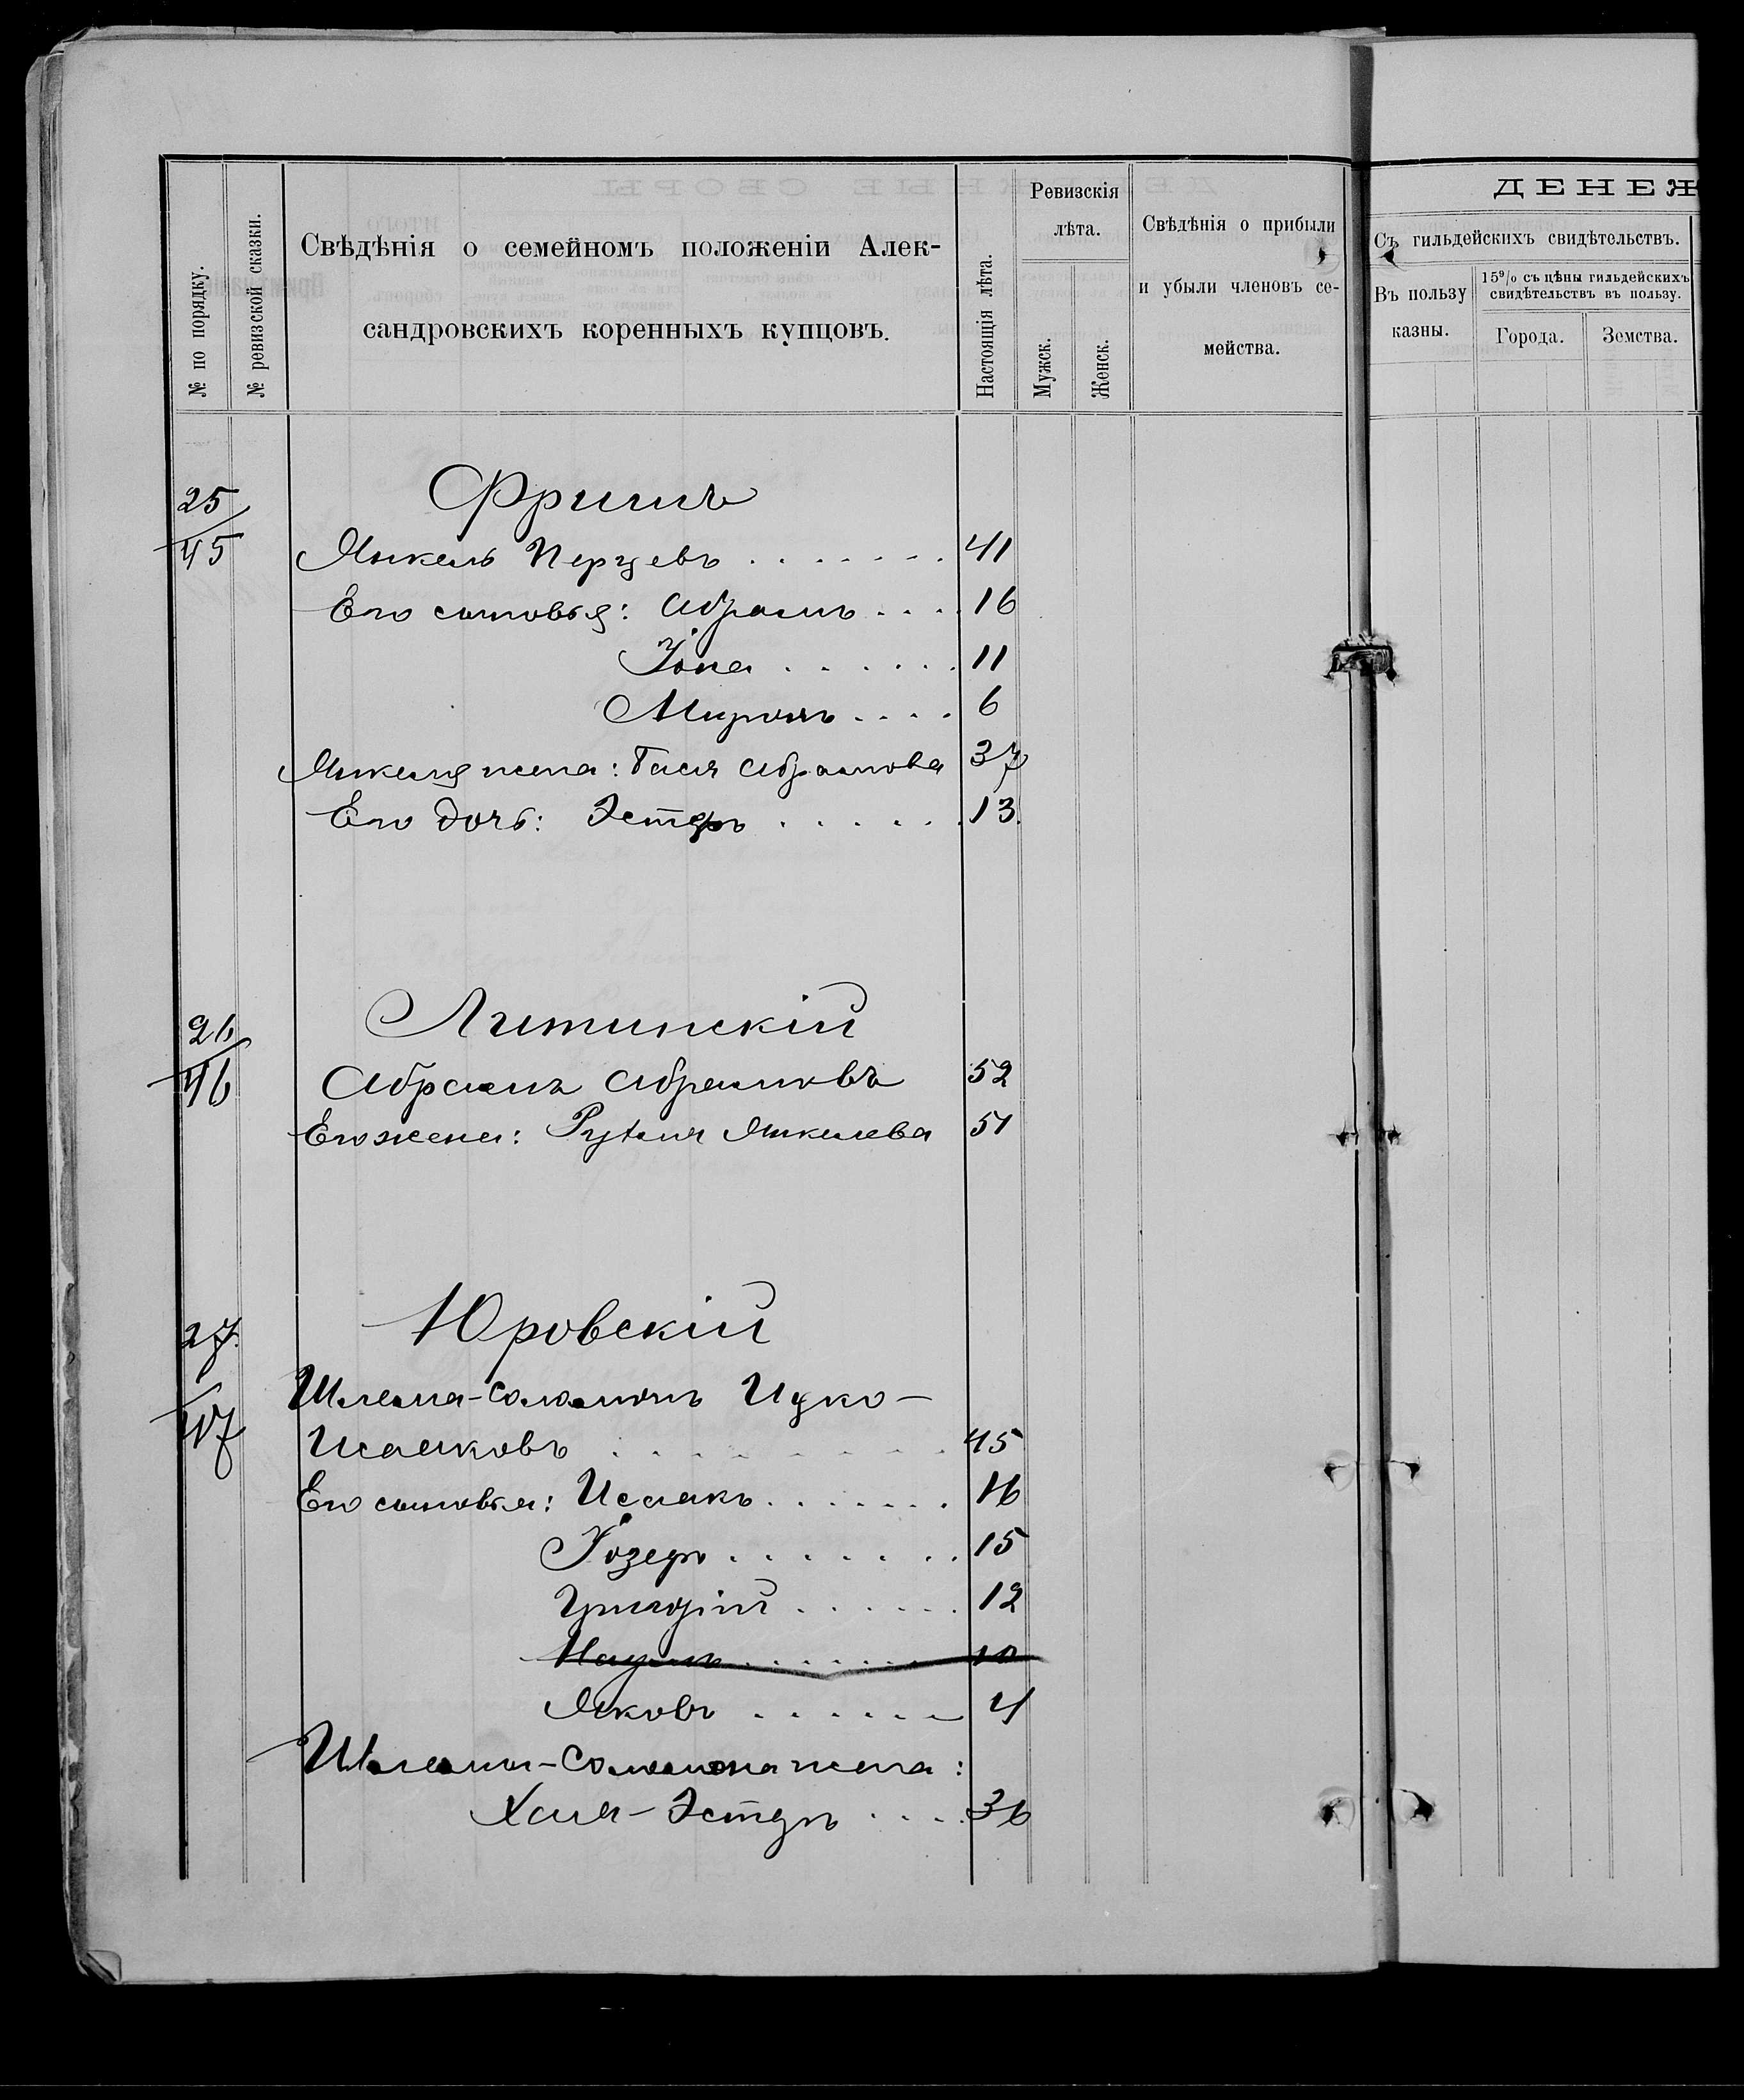 № по порядку.
№ ревизской сказки.
Свѣдѣнія о семейномъ положеніи Алек-
сандровскихъ коренныхъ купцовъ.
Настоящія лѣта.
Ревизскія
лѣта.
Мужск.
Женск.
Свѣдѣнія о прибыли
и убыли членовъ се-
мейства.
ДЕНЕЖ
Съ гильдейскихъ свидѣтельствъ.
Въ пользу
казны.
15% съ цѣны гильдейскихъ
свидѣтельствъ въ пользу.
Города.
Земства.
25
Фришъ
45 Янкель Перцевъ 41
Его сыновья: Абрамъ 16
Іона 11
Миронъ 6
Янкеля жена: Бася Абрамова 37
Его дочь: Эстеръ 13
26
Литинскій
46 Абрамъ Абрамовъ 52
Его жена: Янкелева 51
27
Юровскій
Шлема-Соломонъ Ицко-
47 Исааковъ 45
Его сыновья: Исаакъ 16
Іозефъ 15
Григорій 12
Наумъ 10
Яковъ 4
Шлемы-Соломона жена:
Хая-Эстеръ 36